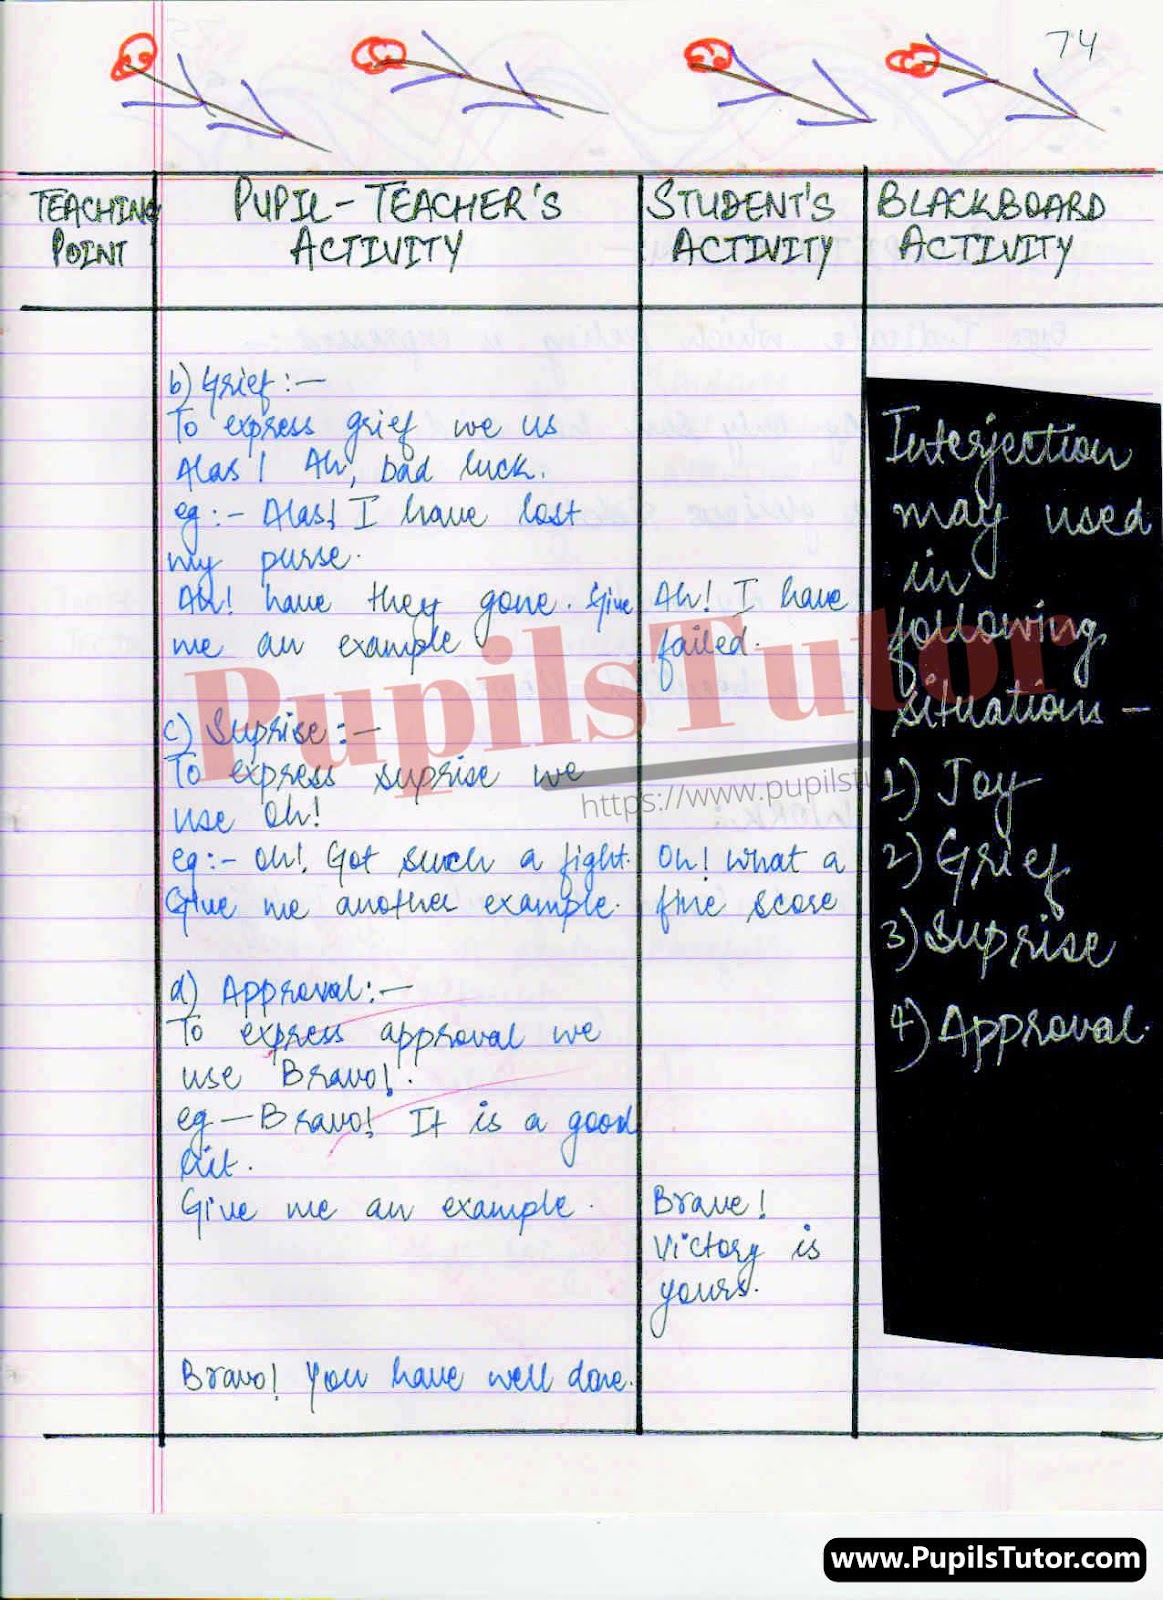 74
TEACHING
POINT
PUPIL-TEACHER'S
ACTIVITY
STUDENT'S
ACTIVITY
BLACKBOARD
ACTIVITY
b) Grief:-
To express grief we us
Alas! Ah, bad luck.
eg:- Alas! I have lost
my purse.
Ah! have they gone. Give
me an example
c) Suprise:-
To express suprise we
use Oh!
eg:- Oh! Got such a fight.
Give me another example.
d) Approval:-
To express approval we
use 'Bravo!'.
eg-Bravo! It is a good
hit.
Give me an example.
Bravo! You have well done.
Ah! I have
failed.
Oh! What a
fine score
Brave!
Victory is
yours.
Interjection
may used
in
following
situations-
1) Joy
2) Grief
3) Suprise
4) Approval.
PupilsTutor
https://www.pupilstu
www.PupilsTutor.com